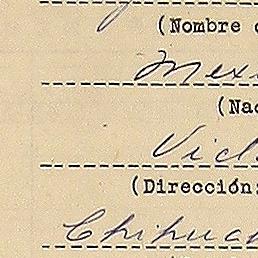 (Nombre
Mexi
(Na
Vict
(Dirección:
Chihuah